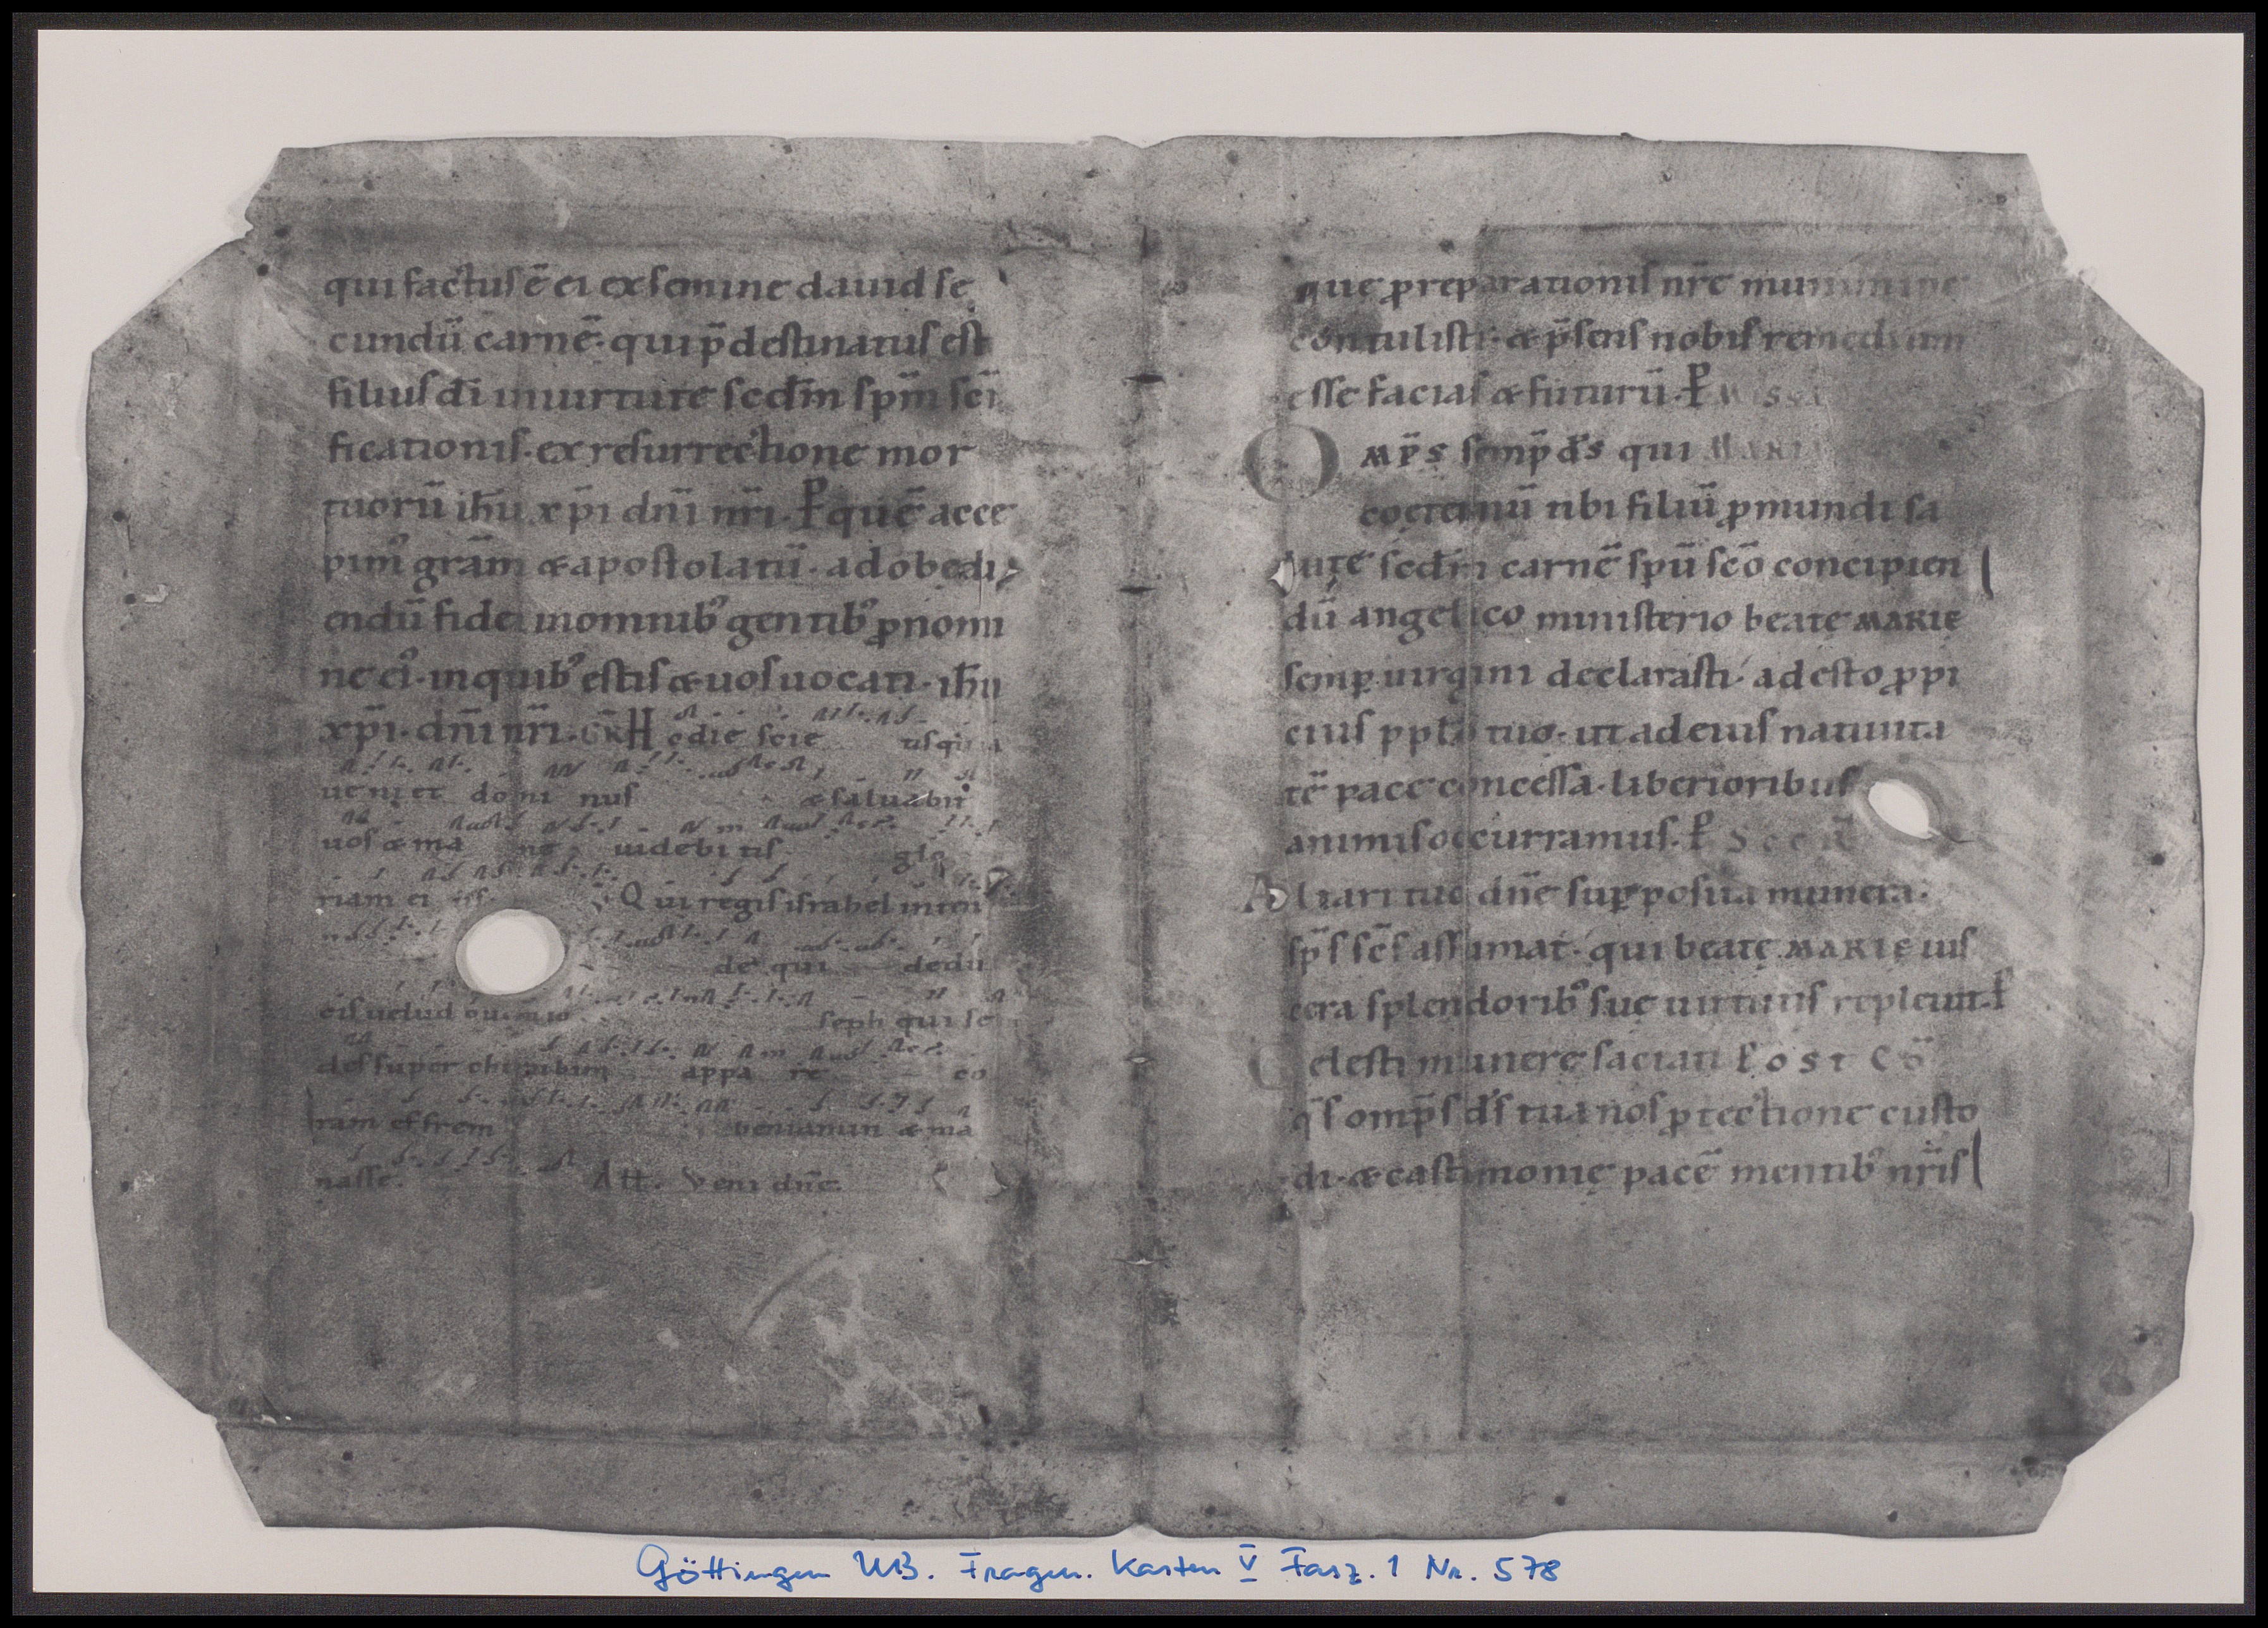 qui factus ē ei ex semine dauid se
cundū carnē· qui p̄destinatus est
filius dī in uirtute scdm̄ spm̄ scī
ficationis· ex resurrectione mor
tuorū ih̄u xp̄i dn̄i nr̄i· P quē acce
pim᷒ grām & apostolatū· ad obedi
endū fidei in omnib᷒ gentib᷒ ꝓ nomi
ne ei᷒· in quib᷒ estis & uos uocati· ih̄u
xp̄i· dn̄i nr̄i· GR̄ Hodie scie tis quia
ueniet domi nus & saluabit
uos & ma ne uidebi tis glo
riam ei Qui regis israhel inten
de qui dedu
cis uelud ouem io seph qui se
des super cherubim appa re co
ram effrem beniamin & ma
nasse. All. Veni dn̄e.
que p̄preparationis nr̄e munimine
contulisti· & p̄sens nobis remedium
esse facias & futurū· P Missa
OMP̄S semp̄ d̄s qui MARI
coęternū tibi filiū ꝓ mundi sa
lute scdm̄ carnē spū scō concipien
dū angelico ministerio beatę MARIE
semp uirgini declarasti· adesto ꝓpi
cius pplo tuo· ut ad eius natiuita
tē pace concessa· liberioribus
animis occurramus· P Secr̄
Altari tuo dn̄e sup posita munera·
sp̄s sc̄s assumat· qui beatę MARIE uis
cera splendorib᷒ suę uirtutis repleuit· P
Celesti munere saciati Post Cō
q̄s omp̄s d̄s tua nos ꝓtectione custo
di· & castimonię pacē mentib᷒ nr̄is
Göttingen UB. Fragm. Kasten V Fasz. 1 Nr. 578